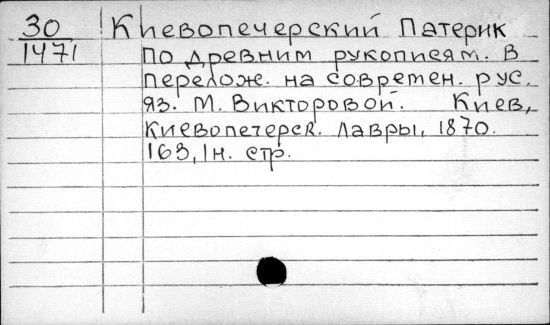 30
1471
Киевопечерский Патерик
по древним рукописям. В
перелож. на современ. рус.
яз. М. Викторовой. Киев,
Киевопечерск. лавры, 1870.
163, 1н. стр.